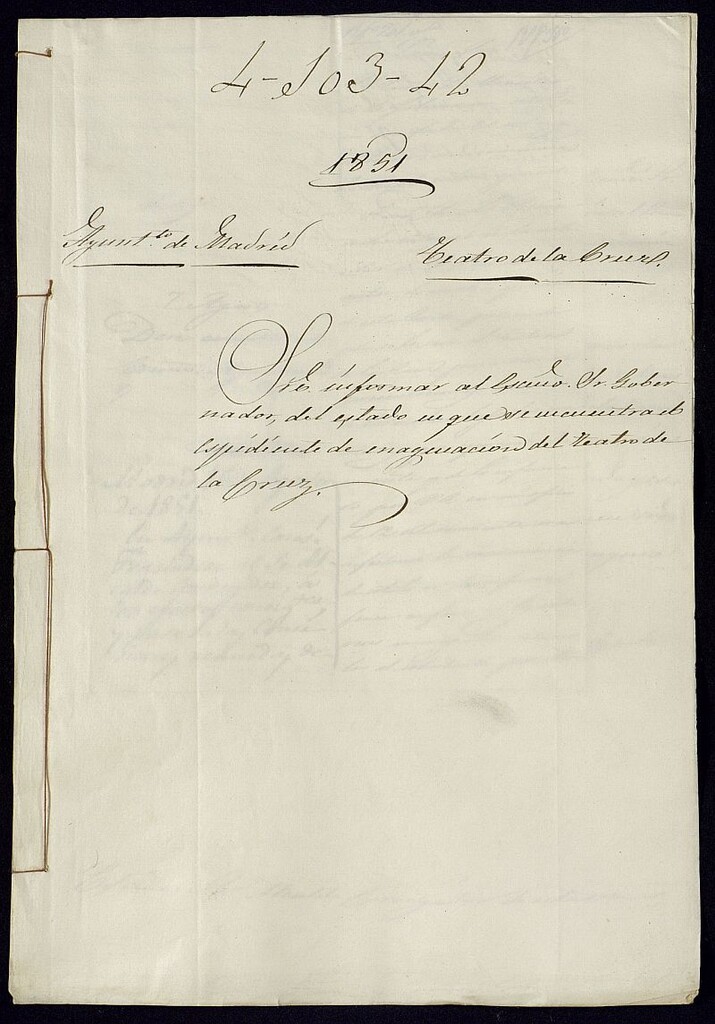 4-103-42
1851
Ayunt.to de Madrid
Teatro de la Cruz.
Sre. informar al Excmo. Sr. Gober-
nador, del estado en que se encuentra el
espediente de enagenacion del Teatro de
la Cruz.